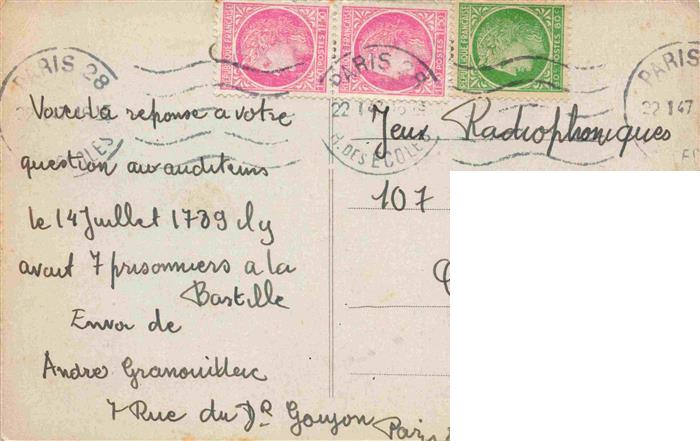 RÉPUBLIQUE FRANÇAISE
1F50 POSTES 1F50
RÉPUBLIQUE FRANÇAISE
1F50 POSTES 1F50
RÉPUBLIQUE FRANÇAISE
80c POSTES 80c
PARIS 28
PARIS 28
22 1 47
R. DES ECOLES
PARIS
22 1 47
Voici la reponse a votre
question aux auditeurs
le 14 Juillet 1789 il y
avait 7 prisonniers a la
Bastille
Envoi de
Andre
7 Rue du Dr Goujon Paris
Jeux Radiophoniques
107